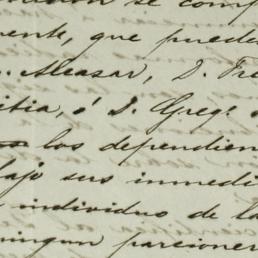 se comp
ente, que puede
Alcasar, D. Fre
itia, ó D. Gregº
los dependien
bajo sus inmedi
individuo de la
ningun parcioner